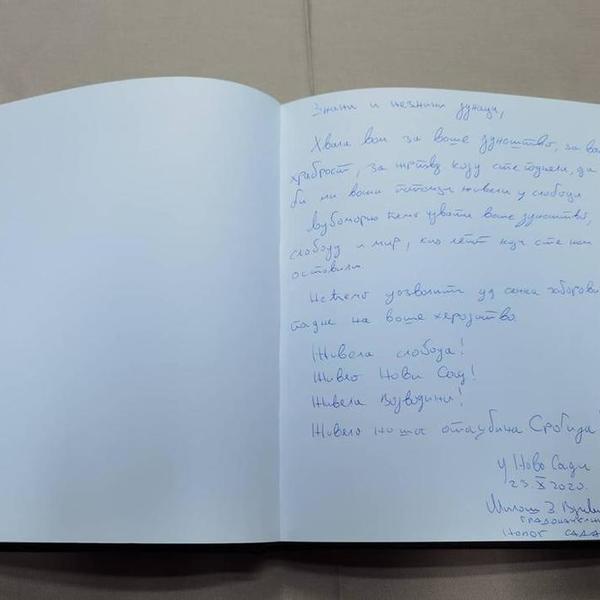 Знани и незнани јунаци,
Хвала вам за ваше јунаштво, за ва
храброст, за жртву коју сте поднели, да
би ми ваши потомци живели у слободи
Љубоморно ћемо чувати ваше јунаштво,
слободу и мир, као што сте нам
оставили
Нећемо дозволити да сенка заборава
падне на ваше херојство
Живела слобода!
Живео Нови Сад!
Живела Војводина!
Живела наша отаџбина Србија!
У Новом Саду
23. X 2020.
Милош
Новог Сада